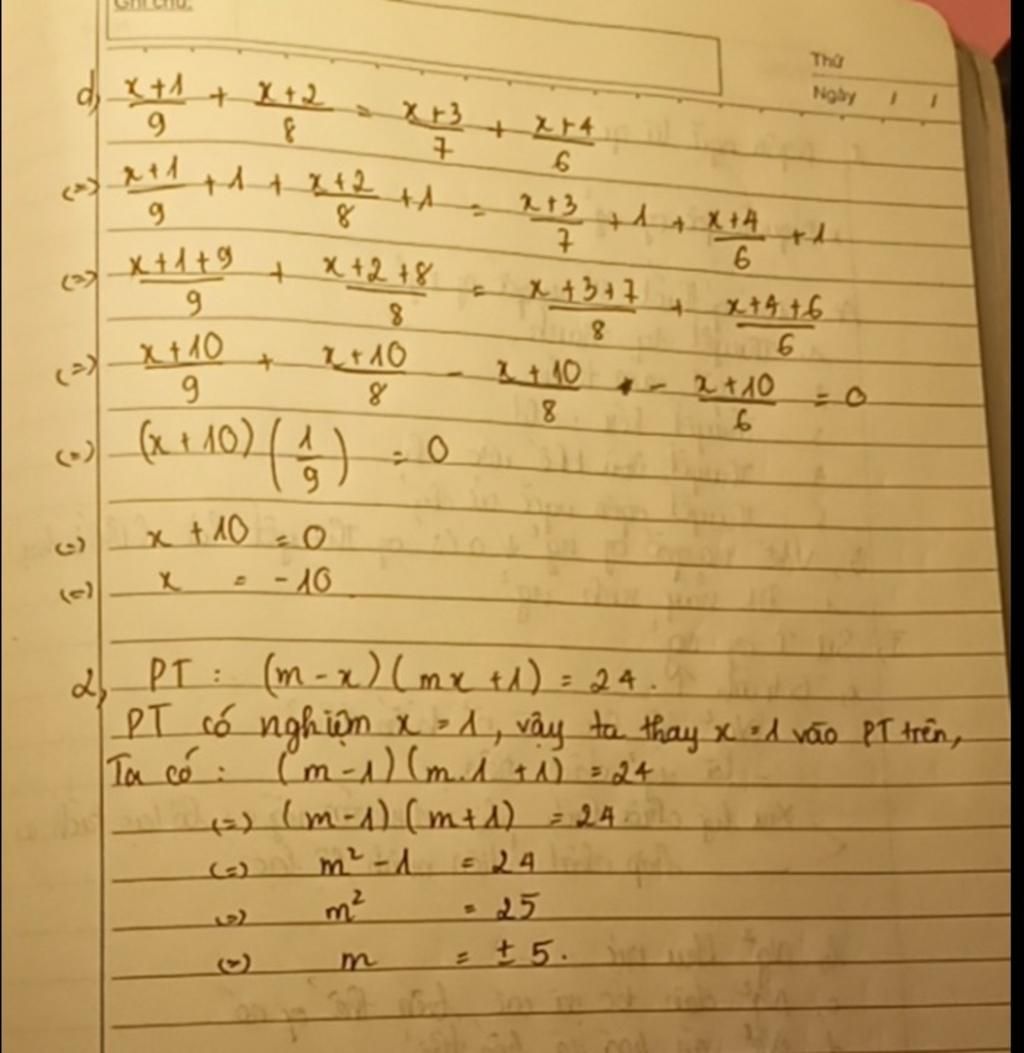 Ghi chú:
Thứ
Ngày / /
d, (x+1)/9 + (x+2)/8 = (x+3)/7 + (x+4)/6
(=) (x+1)/9 + 1 + (x+2)/8 + 1 = (x+3)/7 + 1 + (x+4)/6 + 1
(=) (x+1+9)/9 + (x+2+8)/8 = (x+3+7)/8 + (x+4+6)/6
(=) (x+10)/9 + (x+10)/8 - (x+10)/8 - (x+10)/6 = 0
(=) (x+10)(1/9) = 0
(=) x + 10 = 0
(=) x = -10
2, PT : (m - x)(mx + 1) = 24.
PT có nghiệm x = 1, vậy ta thay x = 1 vào PT trên,
Ta có : (m - 1)(m.1 + 1) = 24
(=) (m - 1)(m + 1) = 24
(=) m² - 1 = 24
(=) m² = 25
(=) m = ± 5.